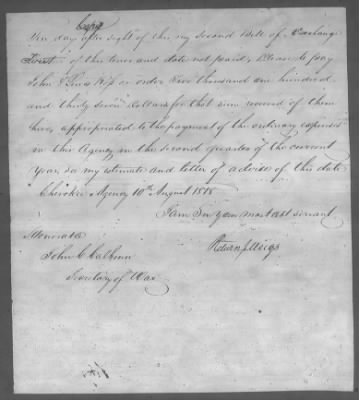 Copy
Ten day after sight of this my second Bill of Exchange
First of the tenor and date not paid, Please to pay
John or order five thousand one hundred
and thirty seven dollars for that sum received of them
here, appropriated to the payment of the ordinary expenses
in this Agency in the second quarter of the current
Year, as my estimate and letter of advise of this date
Cherokee Agency 10th August 1818
I am Sir your most obt servant
Honorable
John C Calhoun
Return J Meigs
Secretary of War